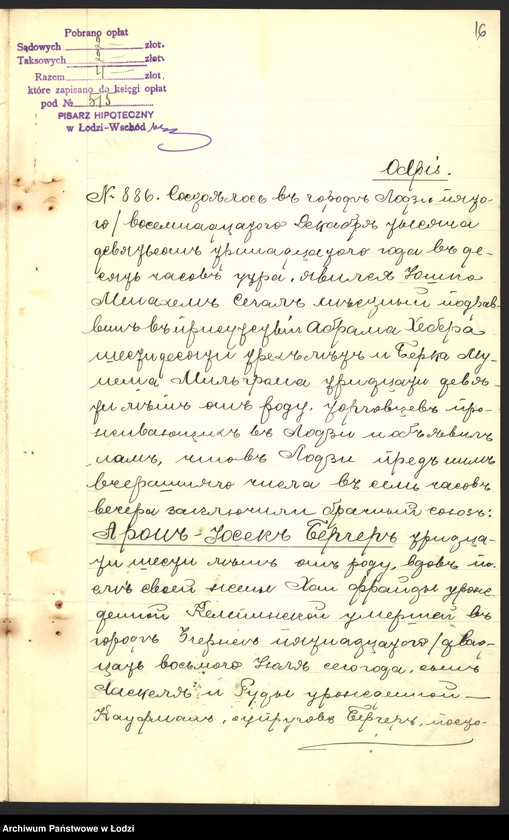 16
Pobrano opłat
Sądowych złot.
Taksowych złot.
Razem złot.
które zapisano do księgi opłat
pod № 515
PISARZ HIPOTECZNY
w Łodzi-Wschód
Odpis.
№ 886. Состоялось въ городѣ Лодзи пято-
го/ восемнадцатого Декабря тысяча
девятьсотъ тринадцатого года въ де-
сять часовъ утра. явился
сегалъ мѣстный подрав-
винъ въ присутствіи Абрама Хебера
шестидесяти трехъ лѣтъ и Берка Му-
Мильграма тридцати девя-
ти лѣтъ отъ роду, торговцевъ про-
живающихъ въ Лодзи и объявилъ
намъ, что въ Лодзи предъ нимъ
вчерашняго числа въ семь часовъ
вечера заключили брачный союзъ:
Аронъ-Іосекъ Бергеръ тридца-
ти шести лѣтъ отъ роду, вдовъ по-
слѣ своей жены Хаи Фрайды урож-
денной умершей въ
городѣ Згержѣ пятнадцатого/ двад-
цать восьмого Іюля сего года, сынъ
Хаскеля и Руды урожденной
Кауфманъ, супруговъ Бергеръ, посто-
Archiwum Państwowe w Łodzi